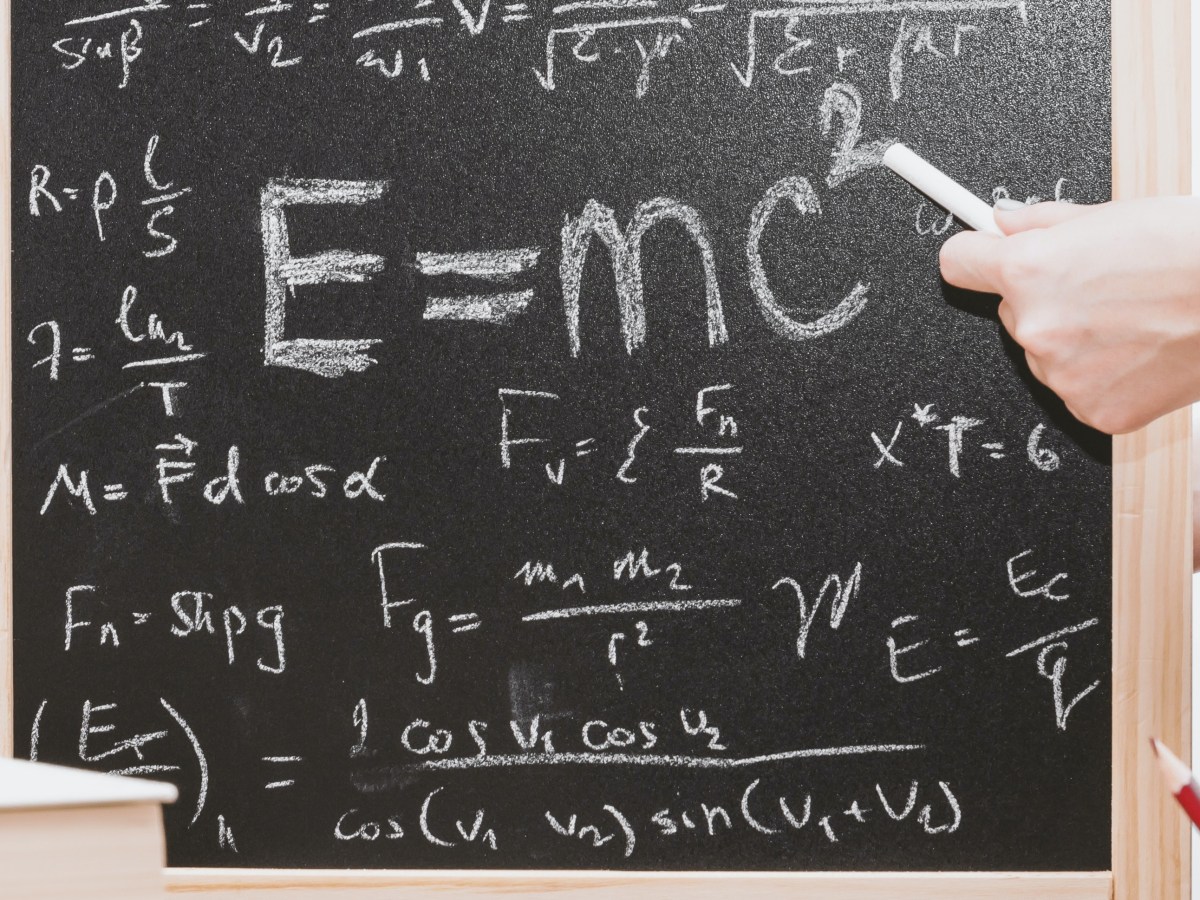 sinβ = v2 = v1 V = √ε·μ = √εr μr
R = ρ l/S
E = mc²
λ = ln2/T
Fv = { Fn/R
x*T = 6
M = F⃗ d cos α
Fn = Shρg
Fg = m1 m2/r²
E = Ec/q
(E
= 2 cos v1 cos v2 / cos(v1 v2) sin(v1+v2)